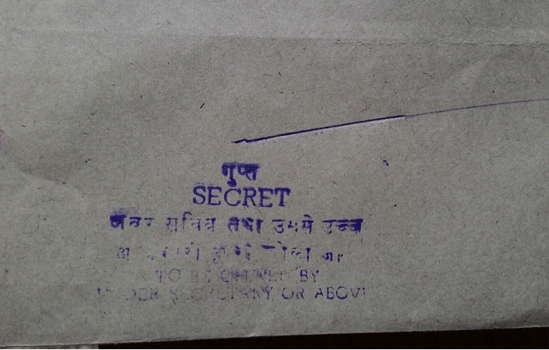 गुप्त
SECRET
अवर सचिव तथा उससे उच्च
TO BE OPENED BY
UNDER SECRETARY OR ABOVE